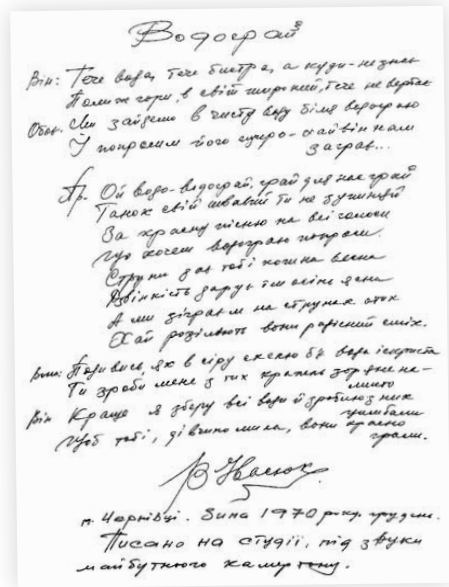 Водограй
Він: Тече вода, тече бистра, а куди - не знає
Поміж гори, в світ широкий, тече не вертає
Обоє. Ми зайдемо в чисту воду біля водограю
І попросим його щиро - хай він нам
заграє...
Пр. Ой водо-водограй, грай для нас грай
Танок свій жвавий ти не зупиняй
За красну пісню на всі голоси
Що хочеш водограю попроси.
Струни дав тобі кожна весна
Дзвінкість дарує їм осінь ясна
А ми зіграєм на струнах отих
Хай розділяють вони радісний сміх.
Вона: Подивись, як в сіру скелю б'є вода іскриста
Ти зроби мене з тих крапель зоряне на-
мисто
Він Краще я зберу всі води й зроблю з них
цимбали
Щоб тобі, дівчино мила, вони красно
грали.
В Івасюк
м. Чернівці. Зима 1970 року. грудень.
Писано на студії, під звуки
майбутнього